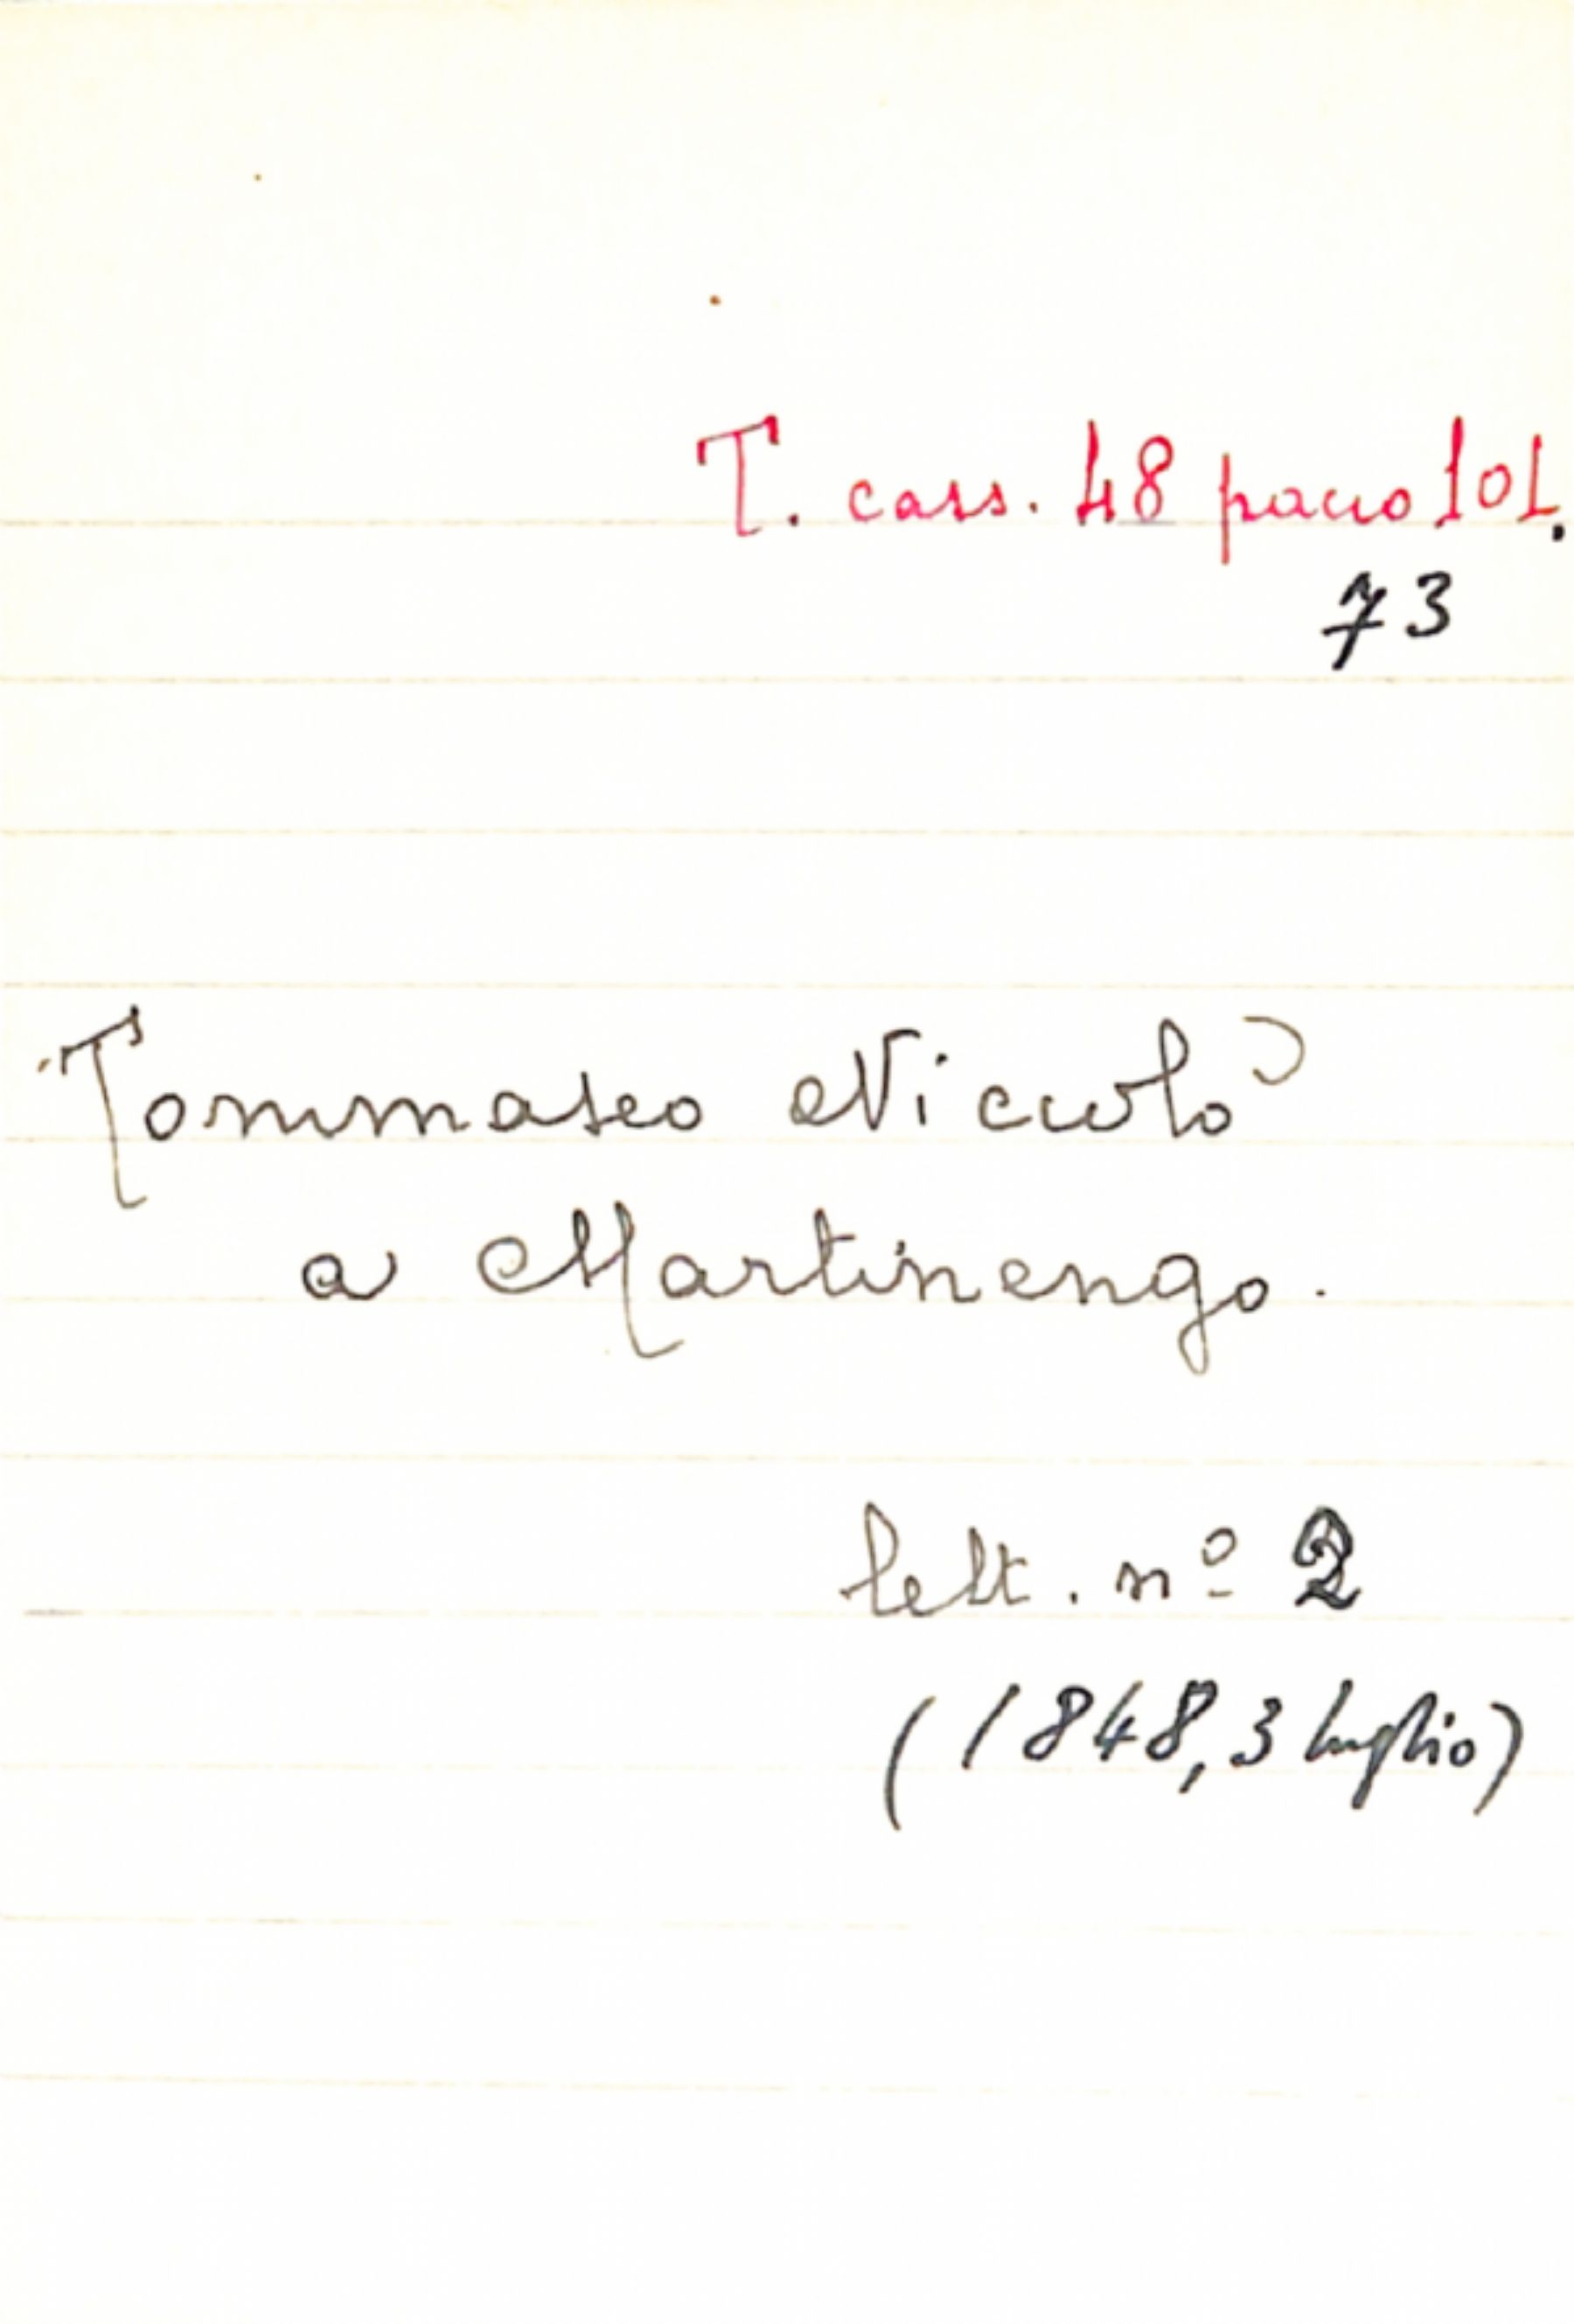 T. cass. 48 pacco 101.
73
Tommaseo Niccolò
a Martinengo.
lett. nº 2
(1848, 3 luglio)